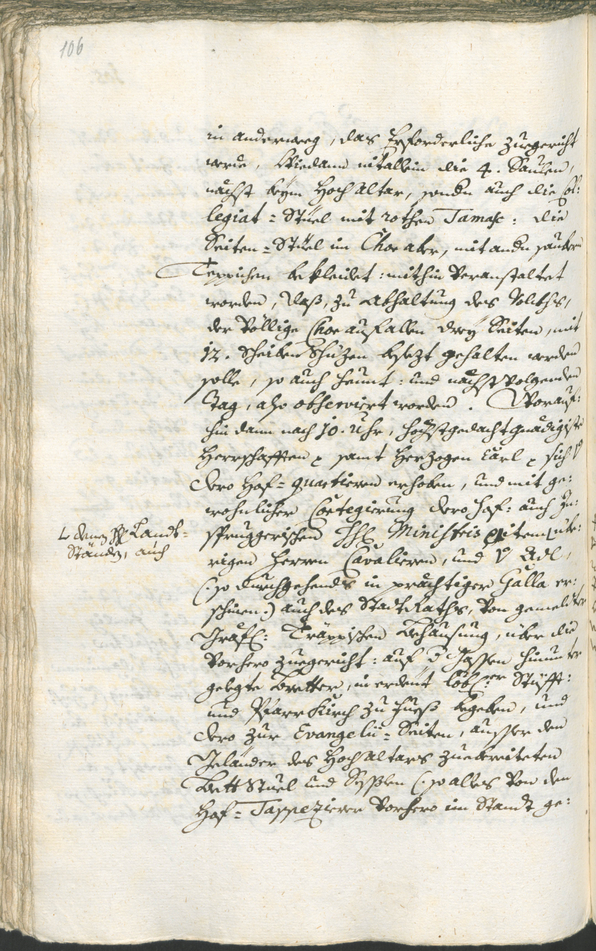 106
in anderweg, das Erforderliche zuegericht
werde, Wiedann nit allein die 4. Säulen,
nächst beÿm Hoch Altar, sondern auch die Col:
legiat=Stüel mit rothen Tamasc: die
Seiten=Stüel im Chor aber, mit andern saubern
Teppichen bekleidet: mithin Veranstaltet
worden, daß, zu abhaltung des Volkhs,
der Völlige Chor auf allen dreÿ Seiten, mit
12. Scheiben Schüzen besezt gehalten werden
solle, so auch heünt: und nächst Volgenden
Tag, also observiert worden. Worauf:
hin dann nach 10. Uhr, höchstgedacht gnädigiste
Herrschafften samt Herzogen Carl sich
dero Hof=Quartieren erhoben, und mit ge:
wohnlicher Cortegierung dero Hof: auch In:
spruggerischen Ministris item übe:
L denen Lands=
Ständen, auch
rigen Herren Cavalieren, und Adl,
(: so durchgehends in prächtiger Galla er:
schinen :) auch des Statt Raths, Von gemelter
Gräfl: Trappischen Behausung, über die
Vorhero zuegericht: auf der Gassen hinunter
gelegte Bretter, in erdeut löbl: Stüfft:
und Pfarr Kirch zu Fueß begeben, und
dero zur Evangelii=Seiten, ausser dem
Geländer des Hoch Altars zuebereiteten
Bettstüel und (: so alles Von dem
Hof=Tappezierer Vorhero im Standt ge: